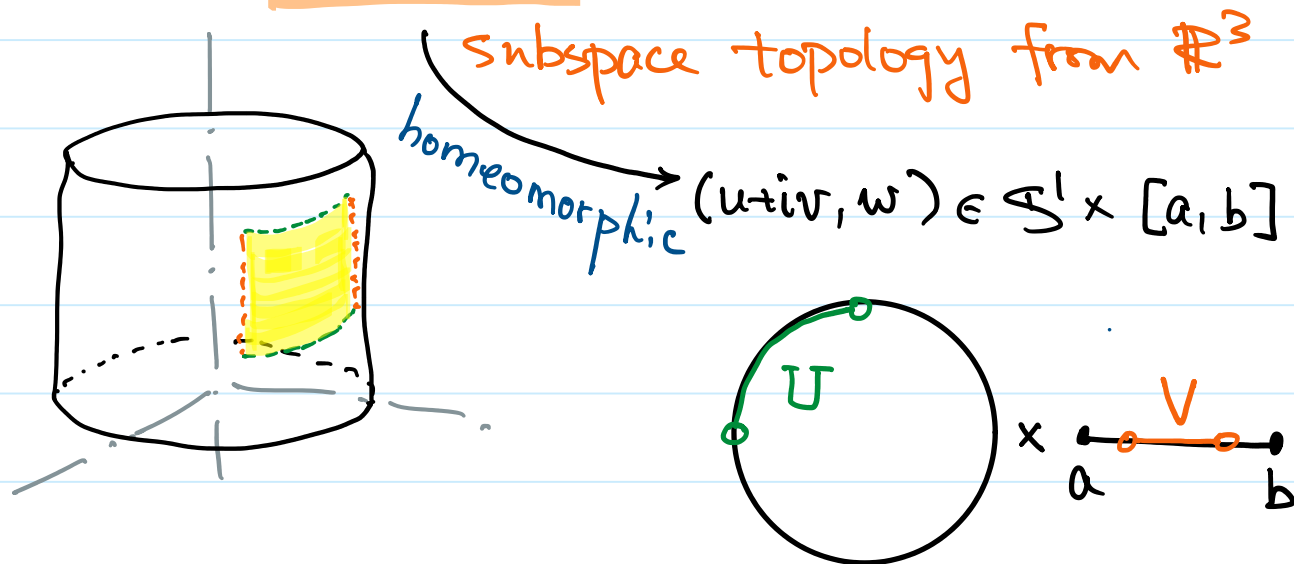 subspace topology from ℝ³
homeomorphic
(u+iv, w) ∈ S¹ × [a, b]
U
×
V
a
b